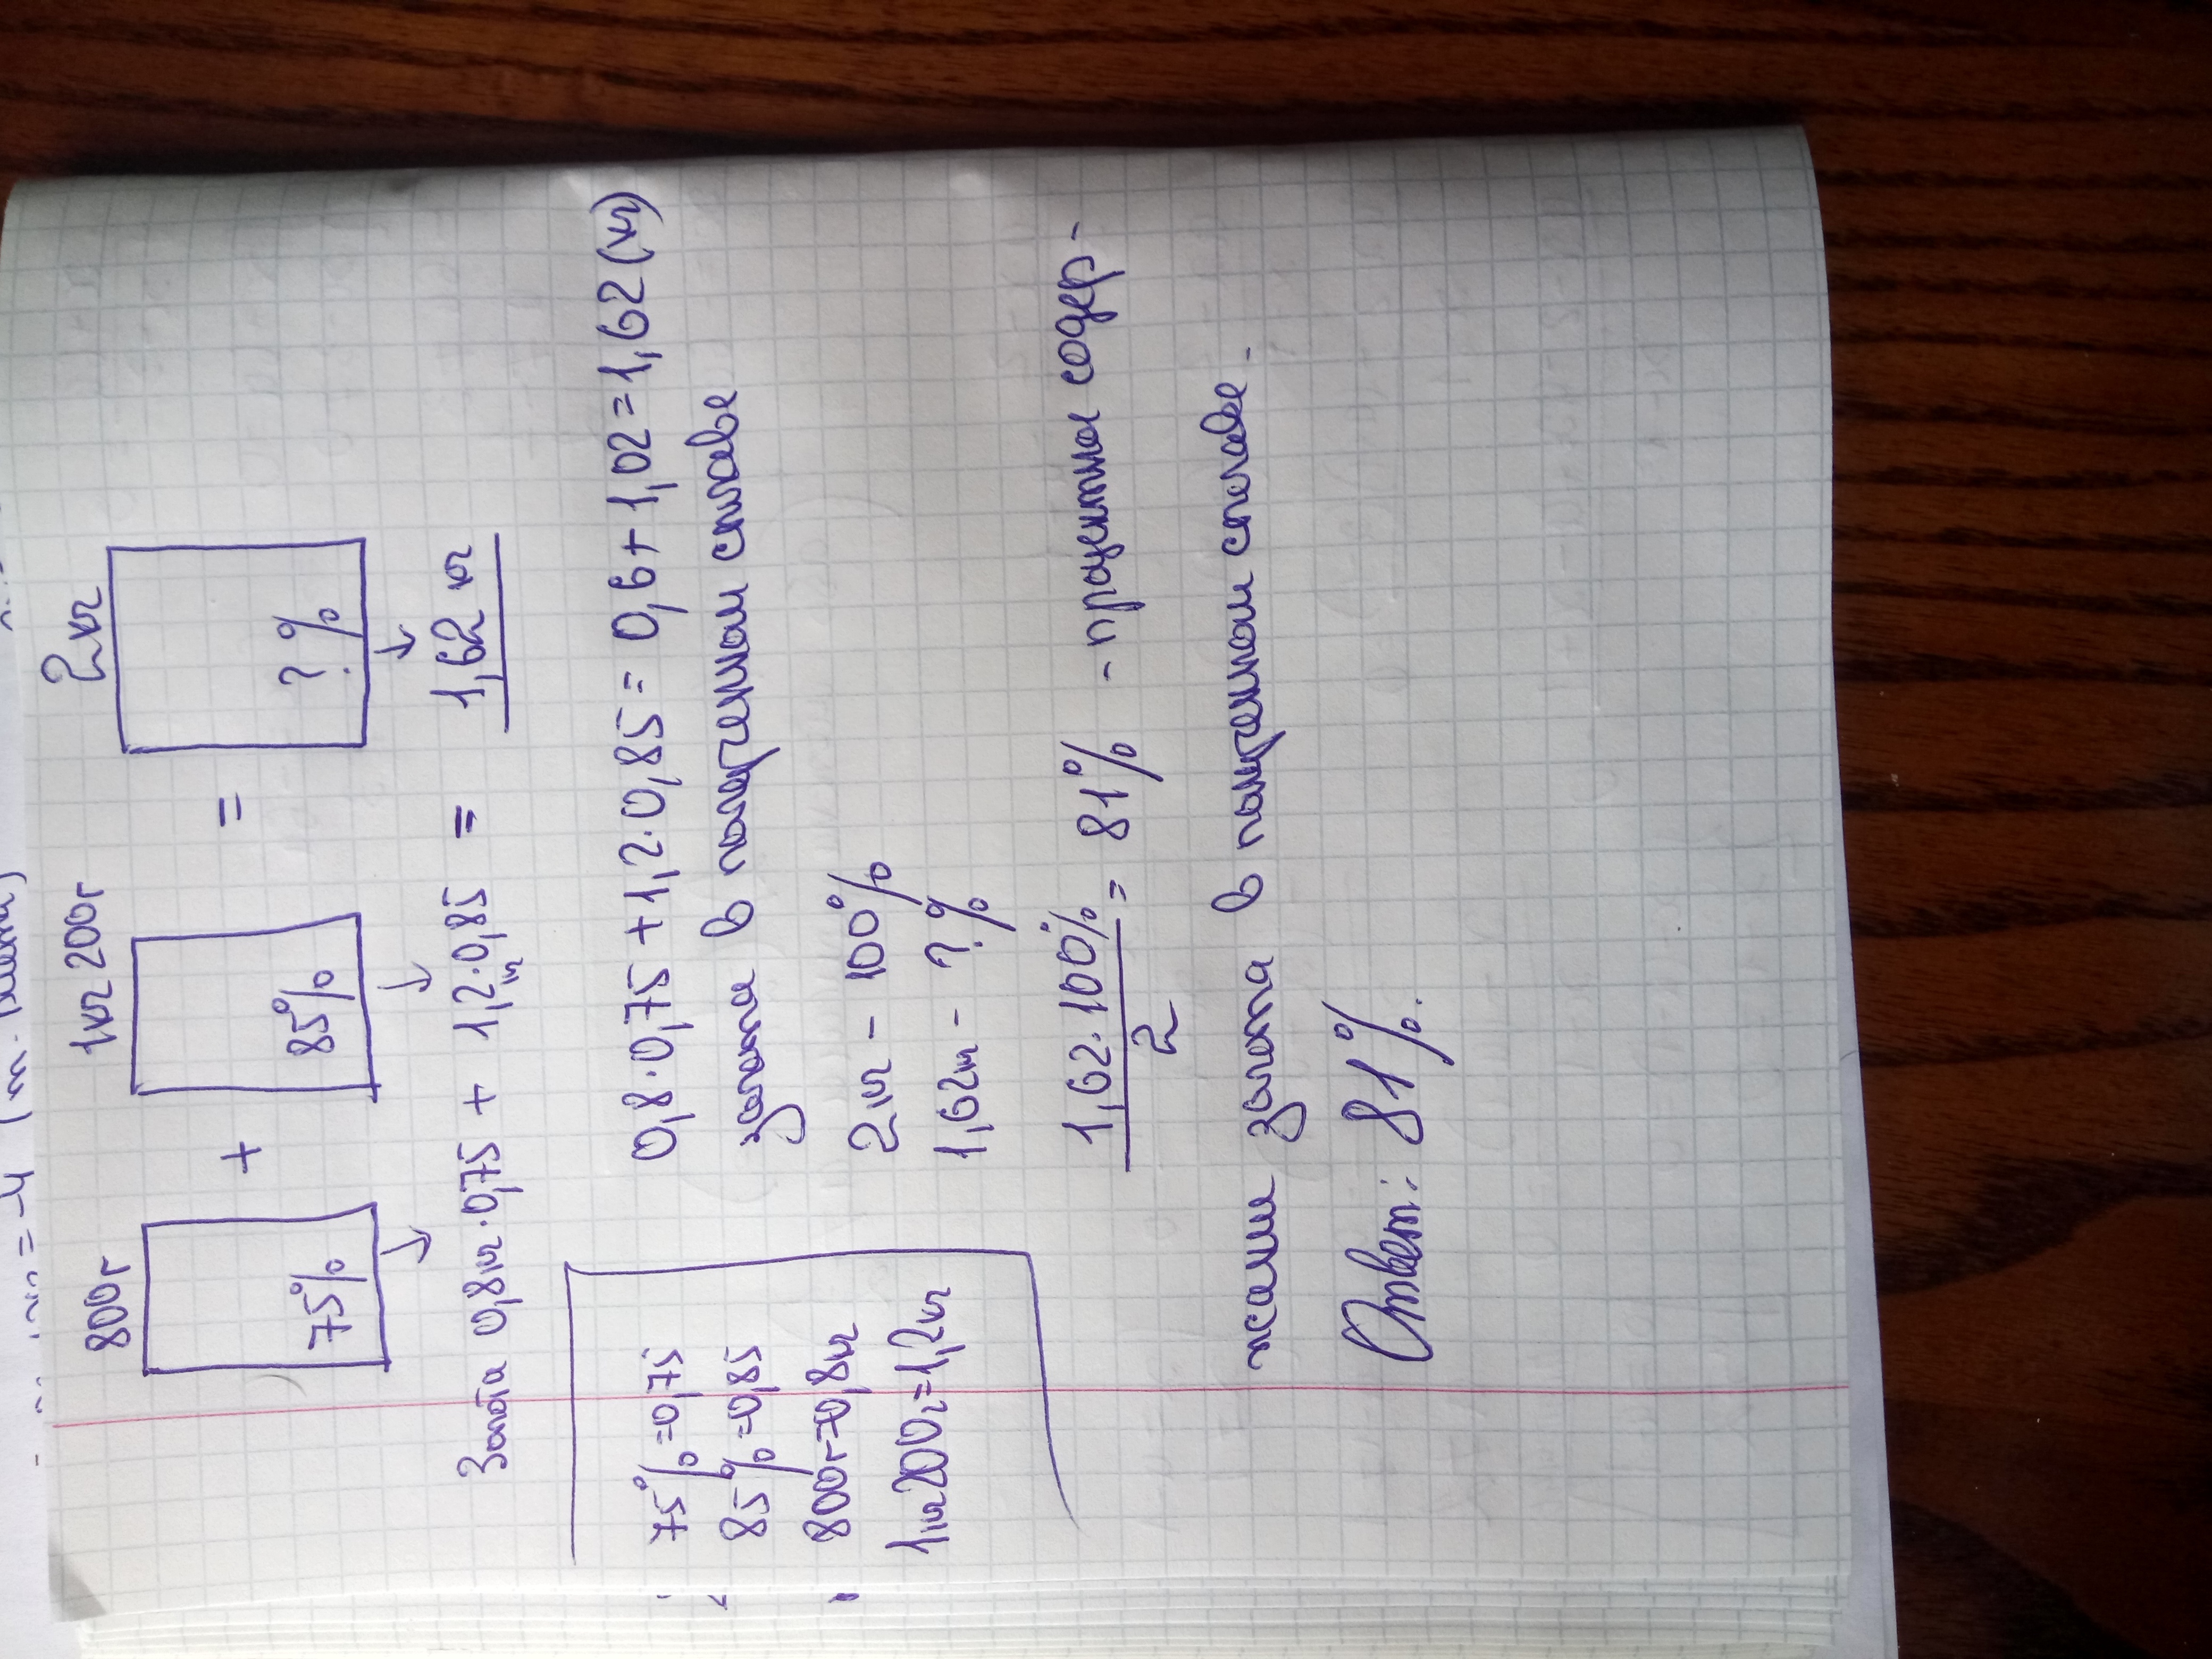 = -4
800г 1кг 200г 2кг
75% + 85% = ? %
Золота 0,8кг·0,75 + 1,2кг·0,85 = 1,62 кг
75%=0,75
85%=0,85
800г=0,8кг
1кг200г=1,2кг
0,8·0,75+1,2·0,85=0,6+1,02=1,62(кг)
золота в полученном сплаве
2кг - 100%
1,62кг - ? %
1,62·100%
2
= 81% - процентное содер-
жание золота в полученном сплаве.
Ответ: 81%.